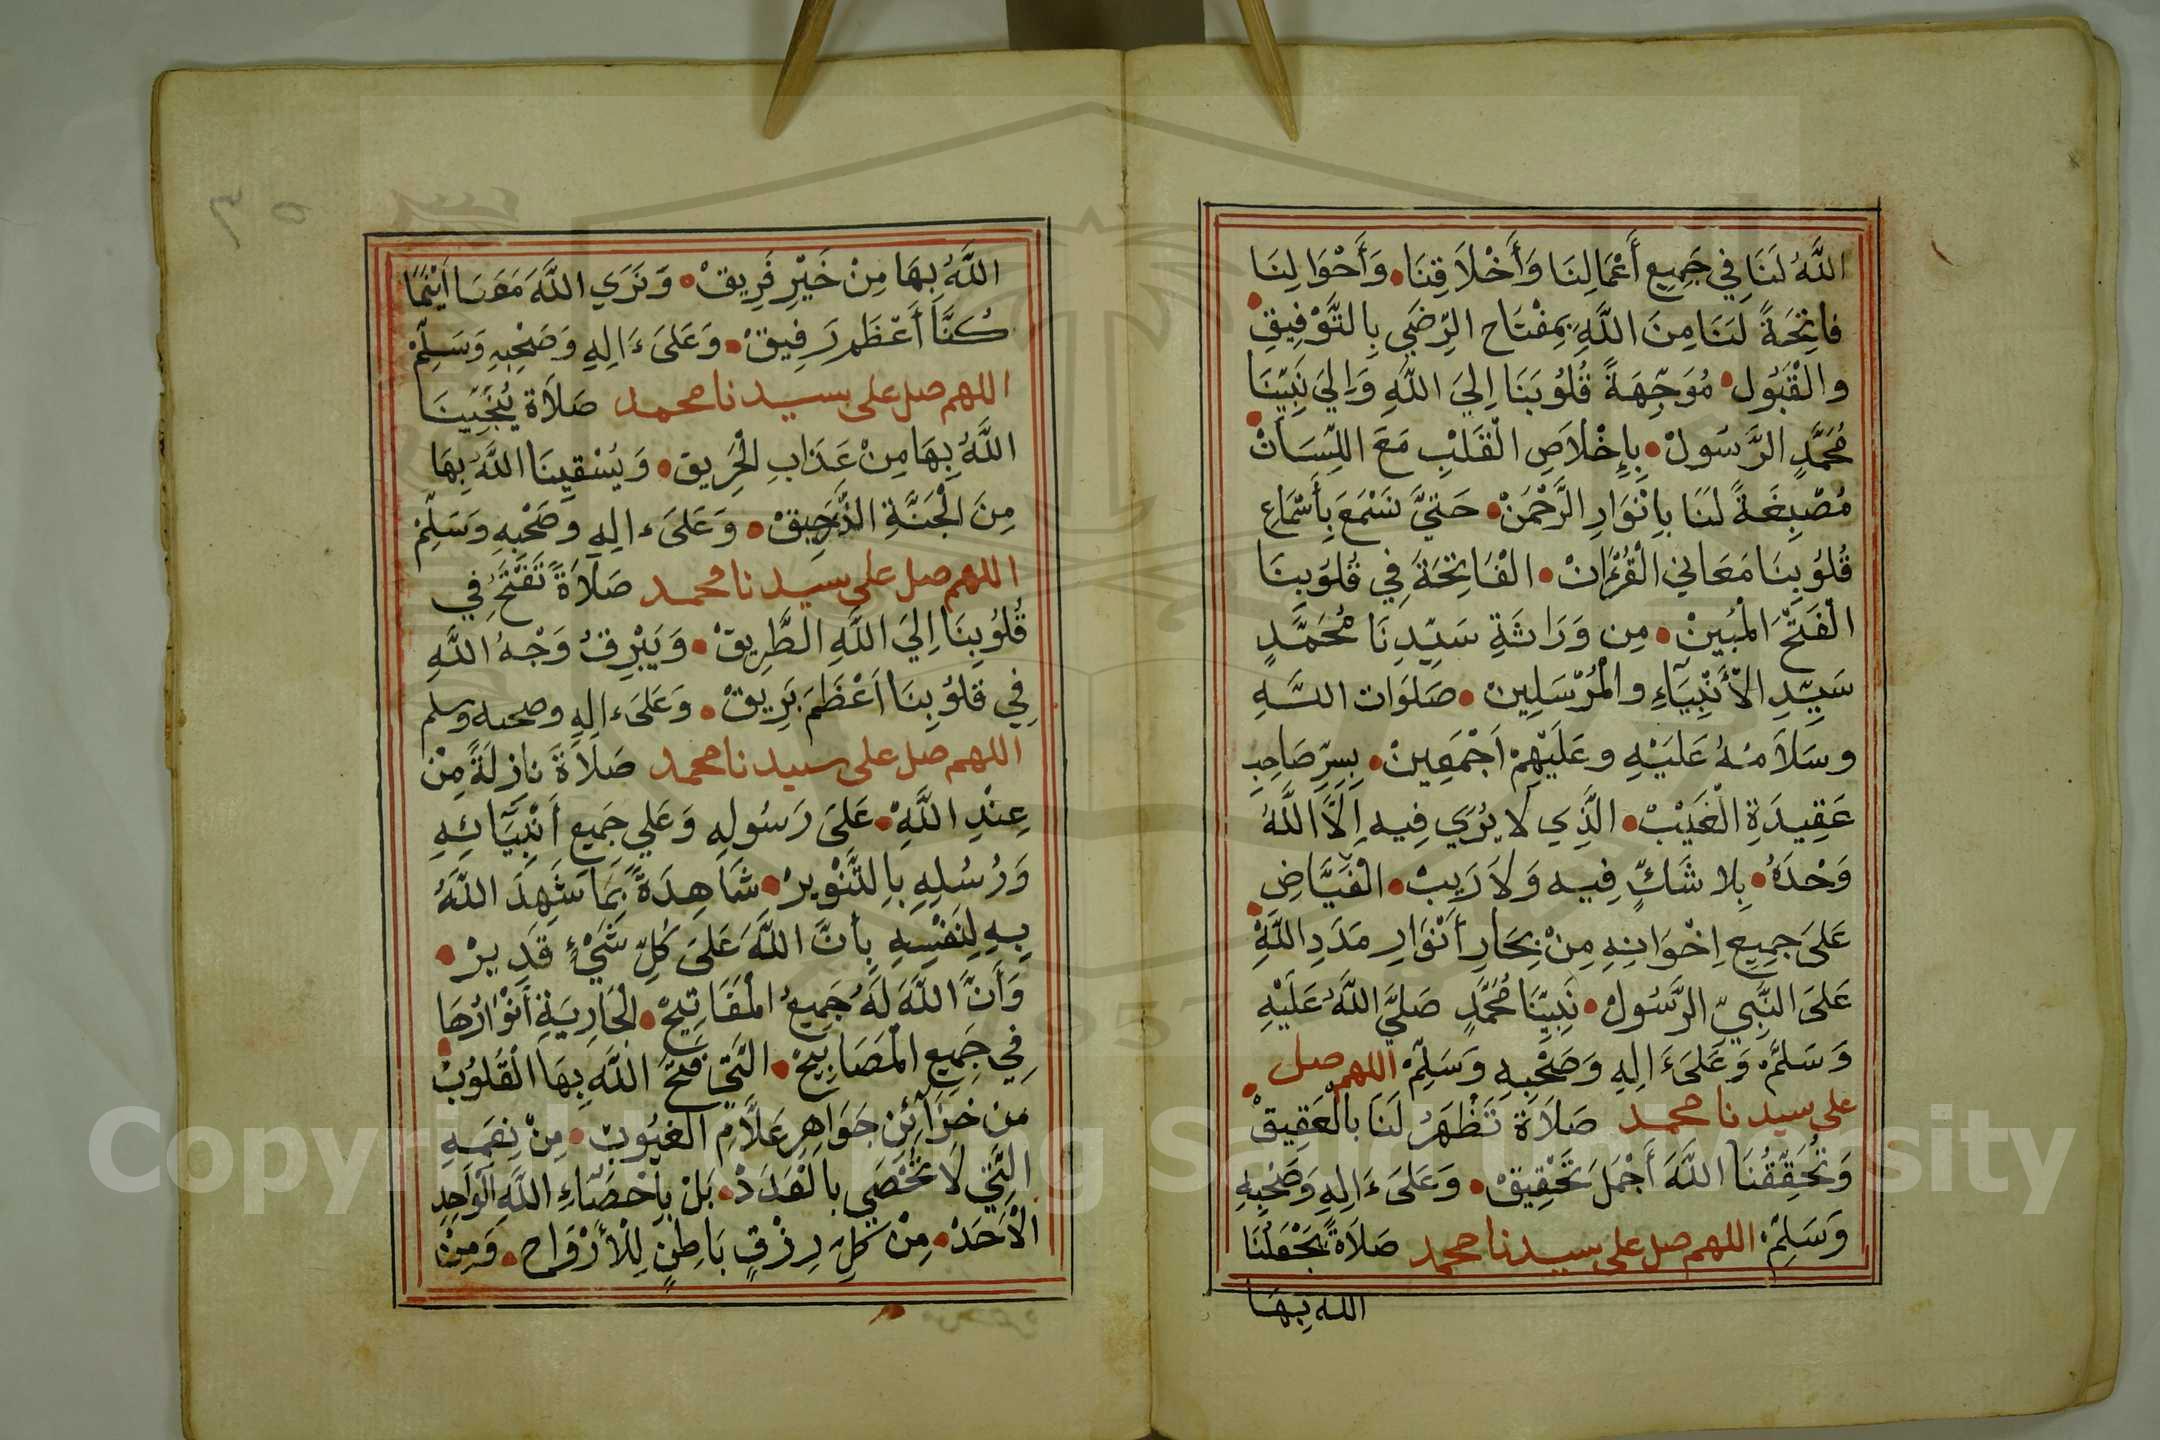 اللَّهُ لَنَا فِي جَمِيعِ أَعْمَالِنَا وَأَخْلَاقِنَا • وَأَحْوَالِنَا •
فَاتِحَةً لَنَا مِنَ اللَّهِ بِمِفْتَاحِ الرِّضَي بِالتَّوْفِيقِ
والْقَبُول • مُوَجِّهَةً قُلُوبَنَا اِلَيَ اللَّهِ وَاِلَيَ نَبِيِّنَا •
مُحَمَّدٍ الرَّسُولْ • بِإِخْلَاصِ الْقَلْبِ مَعَ اللِّسَانْ
مُصْبِغَةً لَنَا بِاَنْوَارِ الرَّحْمَنْ • حَتَيَّ نَسْمَعَ بِأَسْمَاعِ
قُلُوبِنَا مَعَانِي الْقُرْءَانْ • الْفَاتِحَةَ فِي قُلُوبِنَا
الْفَتْحَ الْمُبِينْ • مِن وَرَاثَةِ سَيِّدِنَا مُحَمَّدٍ
سَيِّدِ الْأَنْبِيَآءِ والْمُرْسَلِينْ • صَلَوَات اللَّهِ
وسَلَامُهُ عَلَيْهِ وعَلَيْهِمْ اَجْمَعِينْ • بِسِرِّ صَاحِبِ
عَقِيدَةِ الْغَيْبْ • الَّذِي لَا يُرَي فِيهِ اِلَّا اللَّهُ
وَحْدَهُ • بِلا شَكٍّ فِيهِ وَلَا رَيبْ • الْفَيَّاضِ •
عَلىَ جمِيعِ اِخْوَانِهِ مِنْ بِحَارِ أَنْوَارِ مَدَدِ اللَّهِ
عَلىَ النَّبِيِّ الرَّسُولْ • نَبِيِّنَا مُحَمَّدٍ صَلَيَّ اللَّهُ عَلَيْهِ
وَسَلَّمْ وَعَلىَ ءَالِهِ وَصَحْبِهِ وَسَلِّمْ اللهم صل •
على سيدنا محمد صَلَاةً تَظْهَرُ لَنَا بالْعَقِيقْ
وَتُحَقِّقُنَا اللَّهَ أَجْمَلَ تَحْقِيقْ • وَعَلىَ ءَالِهِ وَصَحْبِهِ
وَسَلِّمْ • اللهم صل على سيدنا محمد صَلَاةً يَجْعَلُنَا
الله بِهَا
اللَّهُ بِهَا مِنْ خَيْرِ فَرِيقْ • وَنَرَي اللَّهَ مَعَنَا اَيْنَمَا
كُنَّا أَعْظَمَ رَفِيقْ • وَعَلىَ ءَالِهِ وَصَحْبِهِ وَسَلِّمْ
اللهم صل على سيدنا محمد صَلَاةً يُنْجِينَا
اللَّهُ بِهَا مِنْ عَذَابِ الْحَرِيق • وَيُسْقِينَا اللَّهُ بِهَا
مِنَ الْجَنَّةِ الرَّحِيقْ • وَعَلىَ ءالِهِ وصَحْبِهِ وَسَلِّمْ
اللهم صل على سيدنا محمد صَلَاةً تَفْتَحُ فِي
قُلُوبِنَا اِلَيَ اللَّهِ الطَّرِيقْ • وَيَبْرِقُ وَجْهُ اللَّهِ
فِي قلُوبِنَا اَعْظَمَ بَرِيقْ • وَعَلىَ ءالِهِ وصحبه وسلم
اللهم صل على سيدنا محمد صَلَاةً نازِلَةً مِنْ
عِنْدِ اللَّهِ • عَلىَ رَسُولِهِ وَعَلَي جَمِيعِ أَنْبِيَآئِهِ
وَرُسُلِهِ بِالتَّنْوِيرْ • شَاهِدَةً بِمَا شَهِدَ اللَّهُ
بِهِ لِنَفْسِهِ بِأَنَّ اللَّهَ عَلىَ كُلِّ شَيْءٍ قَدِيرْ •
وَأَنَّ اللَّهَ لَهُ جَمِيعُ الْمَفَاتِيحْ • الْجَارِيَةِ أَنْوَارُهَا •
فِي جَمِيعِ الْمَصَابِيحْ • الَّتِي فَتَحَ اللَّهُ بِهَا الْقُلُوبْ
مِنْ خَزَآئِنِ جَوَاهِرِ عَلَّامِ الغيُوبْ • مِنْ نِعَمِهِ
الَّتِي لَا تُحْصَي بالْعَدَدْ • بَلْ بِإحْصَآءِ اللَّهِ الْوَاحِدِ
الْأَحَدْ • مِنْ كُلِّ رِزْقٍ بَاطِنٍ لِلْأَرْوَاح • وَمِنْ
Copyright © King Saud University
1957